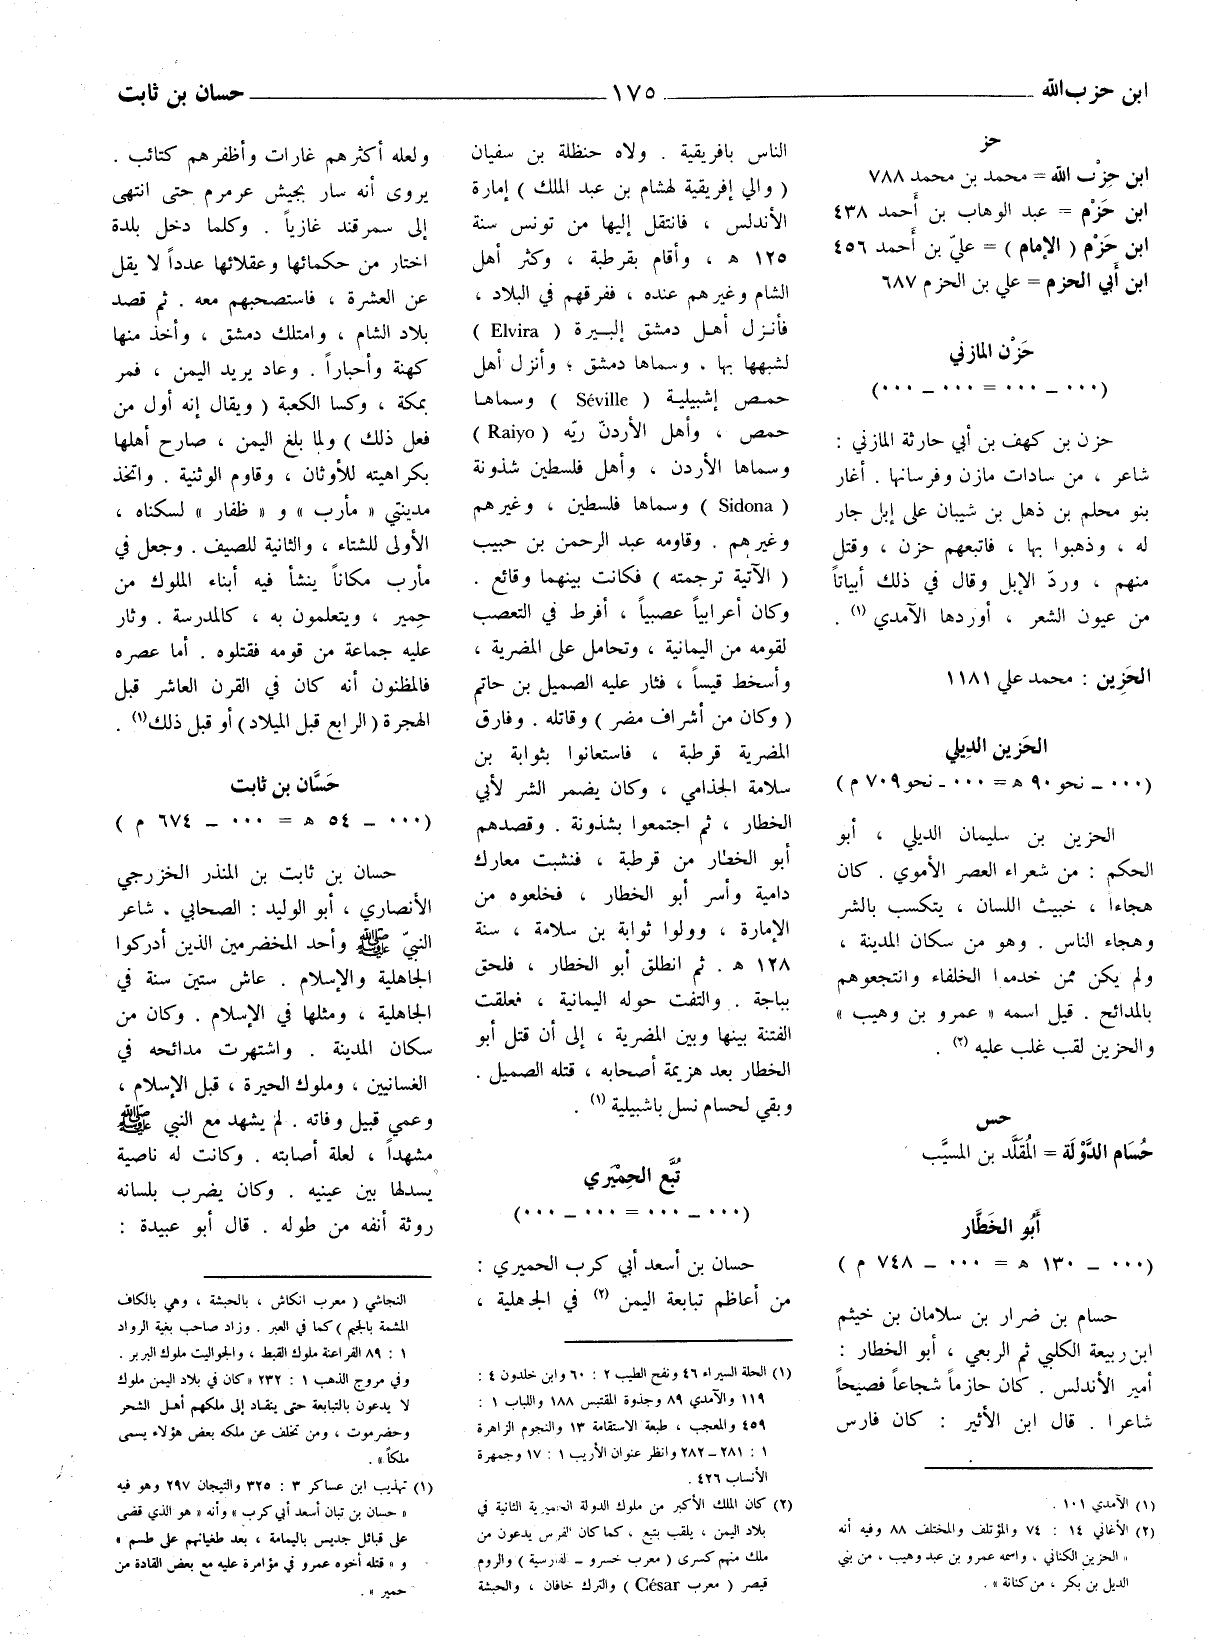 ابن حزب الله ــــــ ١٧٥ ــــــ حسان بن ثابت
حز
ابن حِزْب الله = محمد بن محمد ٧٨٨
ابن حَزْم = عبد الوهاب بن أَحمد ٤٣٨
ابن حَزْم ( الإمام ) = عليّ بن أَحمد ٤٥٦
ابن أَبي الحزم = علي بن الحزم ٦٨٧
حَزْن المازني
(٠٠٠ ــ ٠٠٠ = ٠٠٠ ــ ٠٠٠)
حزن بن كهف بن أبي حارثة المازني :
شاعر ، من سادات مازن وفرسانها . أغار
بنو محلم بن ذهل بن شيبان على إبل جار
له ، وذهبوا بها ، فاتبعهم حزن ، وقتل
منهم ، وردّ الإبل وقال في ذلك أبياتاً
من عيون الشعر ، أوردها الآمدي (١) .
الحَزِين : محمد علي ١١٨١
الحَزين الدِيلي
(٠٠٠ ــ نحو ٩٠ ه = ٠٠٠ ــ نحو ٧٠٩ م )
الحزين بن سليمان الديلي ، أبو
الحكم : من شعراء العصر الأموي . كان
هجاءا ، خبيث اللسان ، يتكسب بالشر
وهجاء الناس . وهو من سكان المدينة ،
ولم يكن ممن خدموا الخلفاء وانتجعوهم
بالمدائح . قيل اسمه « عمرو بن وهيب »
والحزين لقب غلب عليه (٢) .
حس
حُسَام الدَّوْلَة = المُقَلَّد بن المسيَّب
أَبُو الخَطَّار
(٠٠٠ ــ ١٣٠ ه = ٠٠٠ ــ ٧٤٨ م )
حسام بن ضرار بن سلامان بن خيثم
ابن ربيعة الكلبي ثم الربعي ، أبو الخطار :
أمير الأندلس . كان حازماً شجاعاً فصيحاً
شاعرا . قال ابن الأثير : كان فارس
(١) الآمدي ١٠١ .
(٢) الأغاني ١٤ : ٧٤ والمؤتلف والمختلف ٨٨ وفيه أنه
« الحزين الكناني ، واسمه عمرو بن عبد وهيب ، من بني
الديل بن بكر ، من كنانة » .
الناس بافريقية . ولاه حنظلة بن سفيان
( والي إفريقية لهشام بن عبد الملك ) إمارة
الأندلس ، فانتقل إليها من تونس سنة
١٢٥ ه ، وأقام بقرطبة ، وكثر أهل
الشام وغيرهم عنده ، ففرقهم في البلاد ،
فأنزل أهل دمشق إلبيرة ( Elvira )
لشبهها بها ، وسماها دمشق ؛ وأنزل أهل
حمص إشبيلية ( Séville ) وسماها
حمص ، وأهل الأردنّ ريّه ( Raiyo )
وسماها الأردن ، وأهل فلسطين شذونة
( Sidona ) وسماها فلسطين ، وغيرهم
وغيرهم . وقاومه عبد الرحمن بن حبيب
( الآتية ترجمته ) فكانت بينهما وقائع .
وكان أعرابياً عصبياً ، أفرط في التعصب
لقومه من اليمانية ، وتحامل على المضرية ،
وأسخط قيساً ، فثار عليه الصميل بن حاتم
( وكان من أشراف مضر ) وقاتله . وفارق
المضرية قرطبة ، فاستعانوا بثوابة بن
سلامة الجذامي ، وكان يضمر الشر لأبي
الخطار ، ثم اجتمعوا بشذونة . وقصدهم
أبو الخطار من قرطبة ، فنشبت معارك
دامية وأسر أبو الخطار ، فخلعوه من
الإمارة ، وولوا ثوابة بن سلامة ، سنة
١٢٨ ه . ثم انطلق أبو الخطار ، فلحق
بباجة . والتفت حوله اليمانية ، فعلقت
الفتنة بينها وبين المضرية ، إلى أن قتل أبو
الخطار بعد هزيمة أصحابه ، قتله الصميل .
وبقي لحسام نسل باشبيلية (١) .
تُبَّع الحِمْيَري
(٠٠٠ ــ ٠٠٠ = ٠٠٠ ــ ٠٠٠)
حسان بن أسعد أبي كرب الحميري :
من أعاظم تبابعة اليمن (٢) في الجاهلية ،
(١) الحلة السيراء ٤٦ ونفح الطيب ٢ : ٦٠ وابن خلدون ٤ :
١١٩ والآمدي ٨٩ وجذوة المقتبس ١٨٨ واللباب ١ :
٤٥٩ والمعجب ، طبعة الاستقامة ١٣ والنجوم الزاهرة
١ : ٢٨١ ــ ٢٨٢ وانظر عنوان الأريب ١ : ١٧ وجمهرة
الأنساب ٤٢٦ .
(٢) كان الملك الأكبر من ملوك الدولة الحميرية الثانية في
بلاد اليمن ، يلقب بتبع ، كما كان الفرس يدعون من
ملك منهم كسرى ( معرب خسرو ــ الفارسية ) والروم
قيصر ( معرب César ) والترك خاقان ، والحبشة
ولعله أكثرهم غارات وأظفرهم كتائب .
يروى أنه سار بجيش عرمرم حتى انتهى
إلى سمرقند غازياً . وكلما دخل بلدة
اختار من حكمائها وعقلائها عدداً لا يقل
عن العشرة ، فاستصحبهم معه . ثم قصد
بلاد الشام ، وامتلك دمشق ، وأخذ منها
كهنة وأحباراً . وعاد يريد اليمن ، فمر
بمكة ، وكسا الكعبة ( ويقال إنه أول من
فعل ذلك ) ولما بلغ اليمن ، صارح أهلها
بكراهيته للأوثان ، وقاوم الوثنية . واتخذ
مدينتي « مأرب » و « ظفار » لسكناه ،
الأولى للشتاء ، والثانية للصيف . وجعل في
مأرب مكاناً ينشأ فيه أبناء الملوك من
حِمير ، ويتعلمون به ، كالمدرسة . وثار
عليه جماعة من قومه فقتلوه . أما عصره
فالمظنون أنه كان في القرن العاشر قبل
الهجرة ( الرابع قبل الميلاد ) أو قبل ذلك (١) .
حَسَّان بن ثابت
(٠٠٠ ــ ٥٤ ه = ٠٠٠ ــ ٦٧٤ م )
حسان بن ثابت بن المنذر الخزرجي
الأنصاري ، أبو الوليد : الصحابي ، شاعر
النبيّ ﷺ وأحد المخضرمين الذين أدركوا
الجاهلية والإسلام . عاش ستين سنة في
الجاهلية ، ومثلها في الإسلام . وكان من
سكان المدينة . واشتهرت مدائحه في
الغسانيين ، وملوك الحيرة ، قبل الإسلام ،
وعمي قبيل وفاته . لم يشهد مع النبي ﷺ
مشهداً ، لعلة أصابته . وكانت له ناصية
يسدلها بين عينيه . وكان يضرب بلسانه
روثة أنفه من طوله . قال أبو عبيدة :
النجاشي ( معرب انكاش ، بالحبشة ، وهي بالكاف
المشمة بالجيم ) كما في العبر . وزاد صاحب بغية الرواد
١ : ٨٩ الفراعنة ملوك القبط ، والجواليت ملوك البربر .
وفي مروج الذهب ١ : ٢٣٢ « كان في بلاد اليمن ملوك
لا يدعون بالتبابعة حتى ينقاد إلى ملكهم أهل الشحر
وحضرموت ، ومن تخلف عن ملكه بعض هؤلاء يسمى
ملكاً » .
(١) تهذيب ابن عساكر ٣ : ٣٢٥ والتيجان ٢٩٧ وهو فيه
« حسان بن تبان أسعد أبي كرب » وأنه « هو الذي قضى
على قبائل جديس باليمامة ، بعد طغيانهم على طسم »
و « قتله أخوه عمرو في مؤامرة عليه مع بعض القادة من
حمير » .